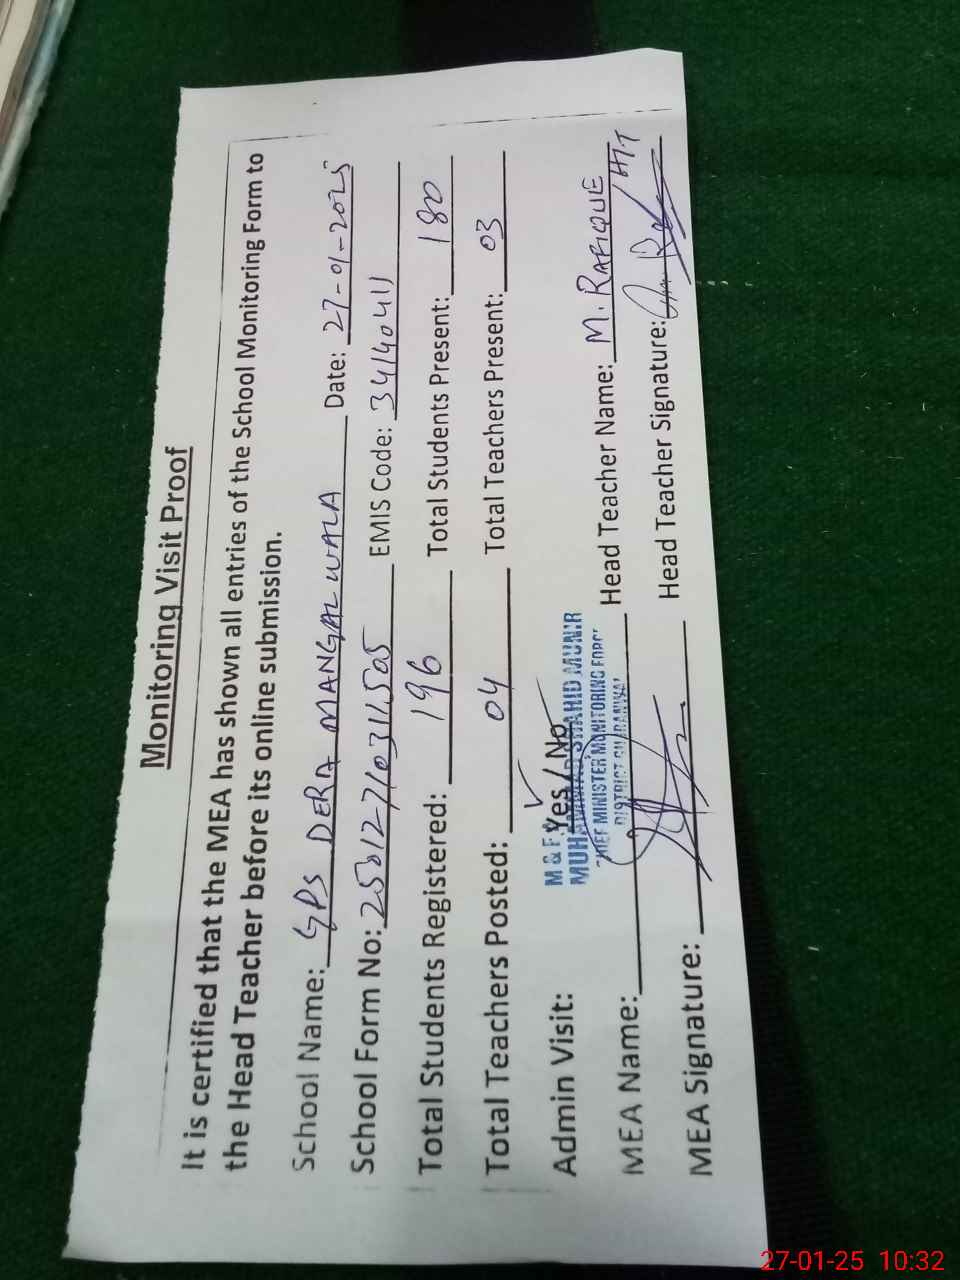 Monitoring Visit Proof
It is certified that the MEA has shown all entries of the School Monitoring Form to
the Head Teacher before its online submission.
School Name: GPS DERA MANGAL WALA Date: 27-01-2025
School Form No: EMIS Code: 34140411
Total Students Registered: 196 Total Students Present: 180
Total Teachers Posted: 04 Total Teachers Present: 03
Admin Visit: Yes / No
M & E
MUHAMMAD SHAHID MUNIR
CHIEF MINISTER MONITORING FORCE
DISTRICT
MEA Name: Head Teacher Name: M. RAFIQUE / HT
MEA Signature: Head Teacher Signature:
27-01-25 10:32